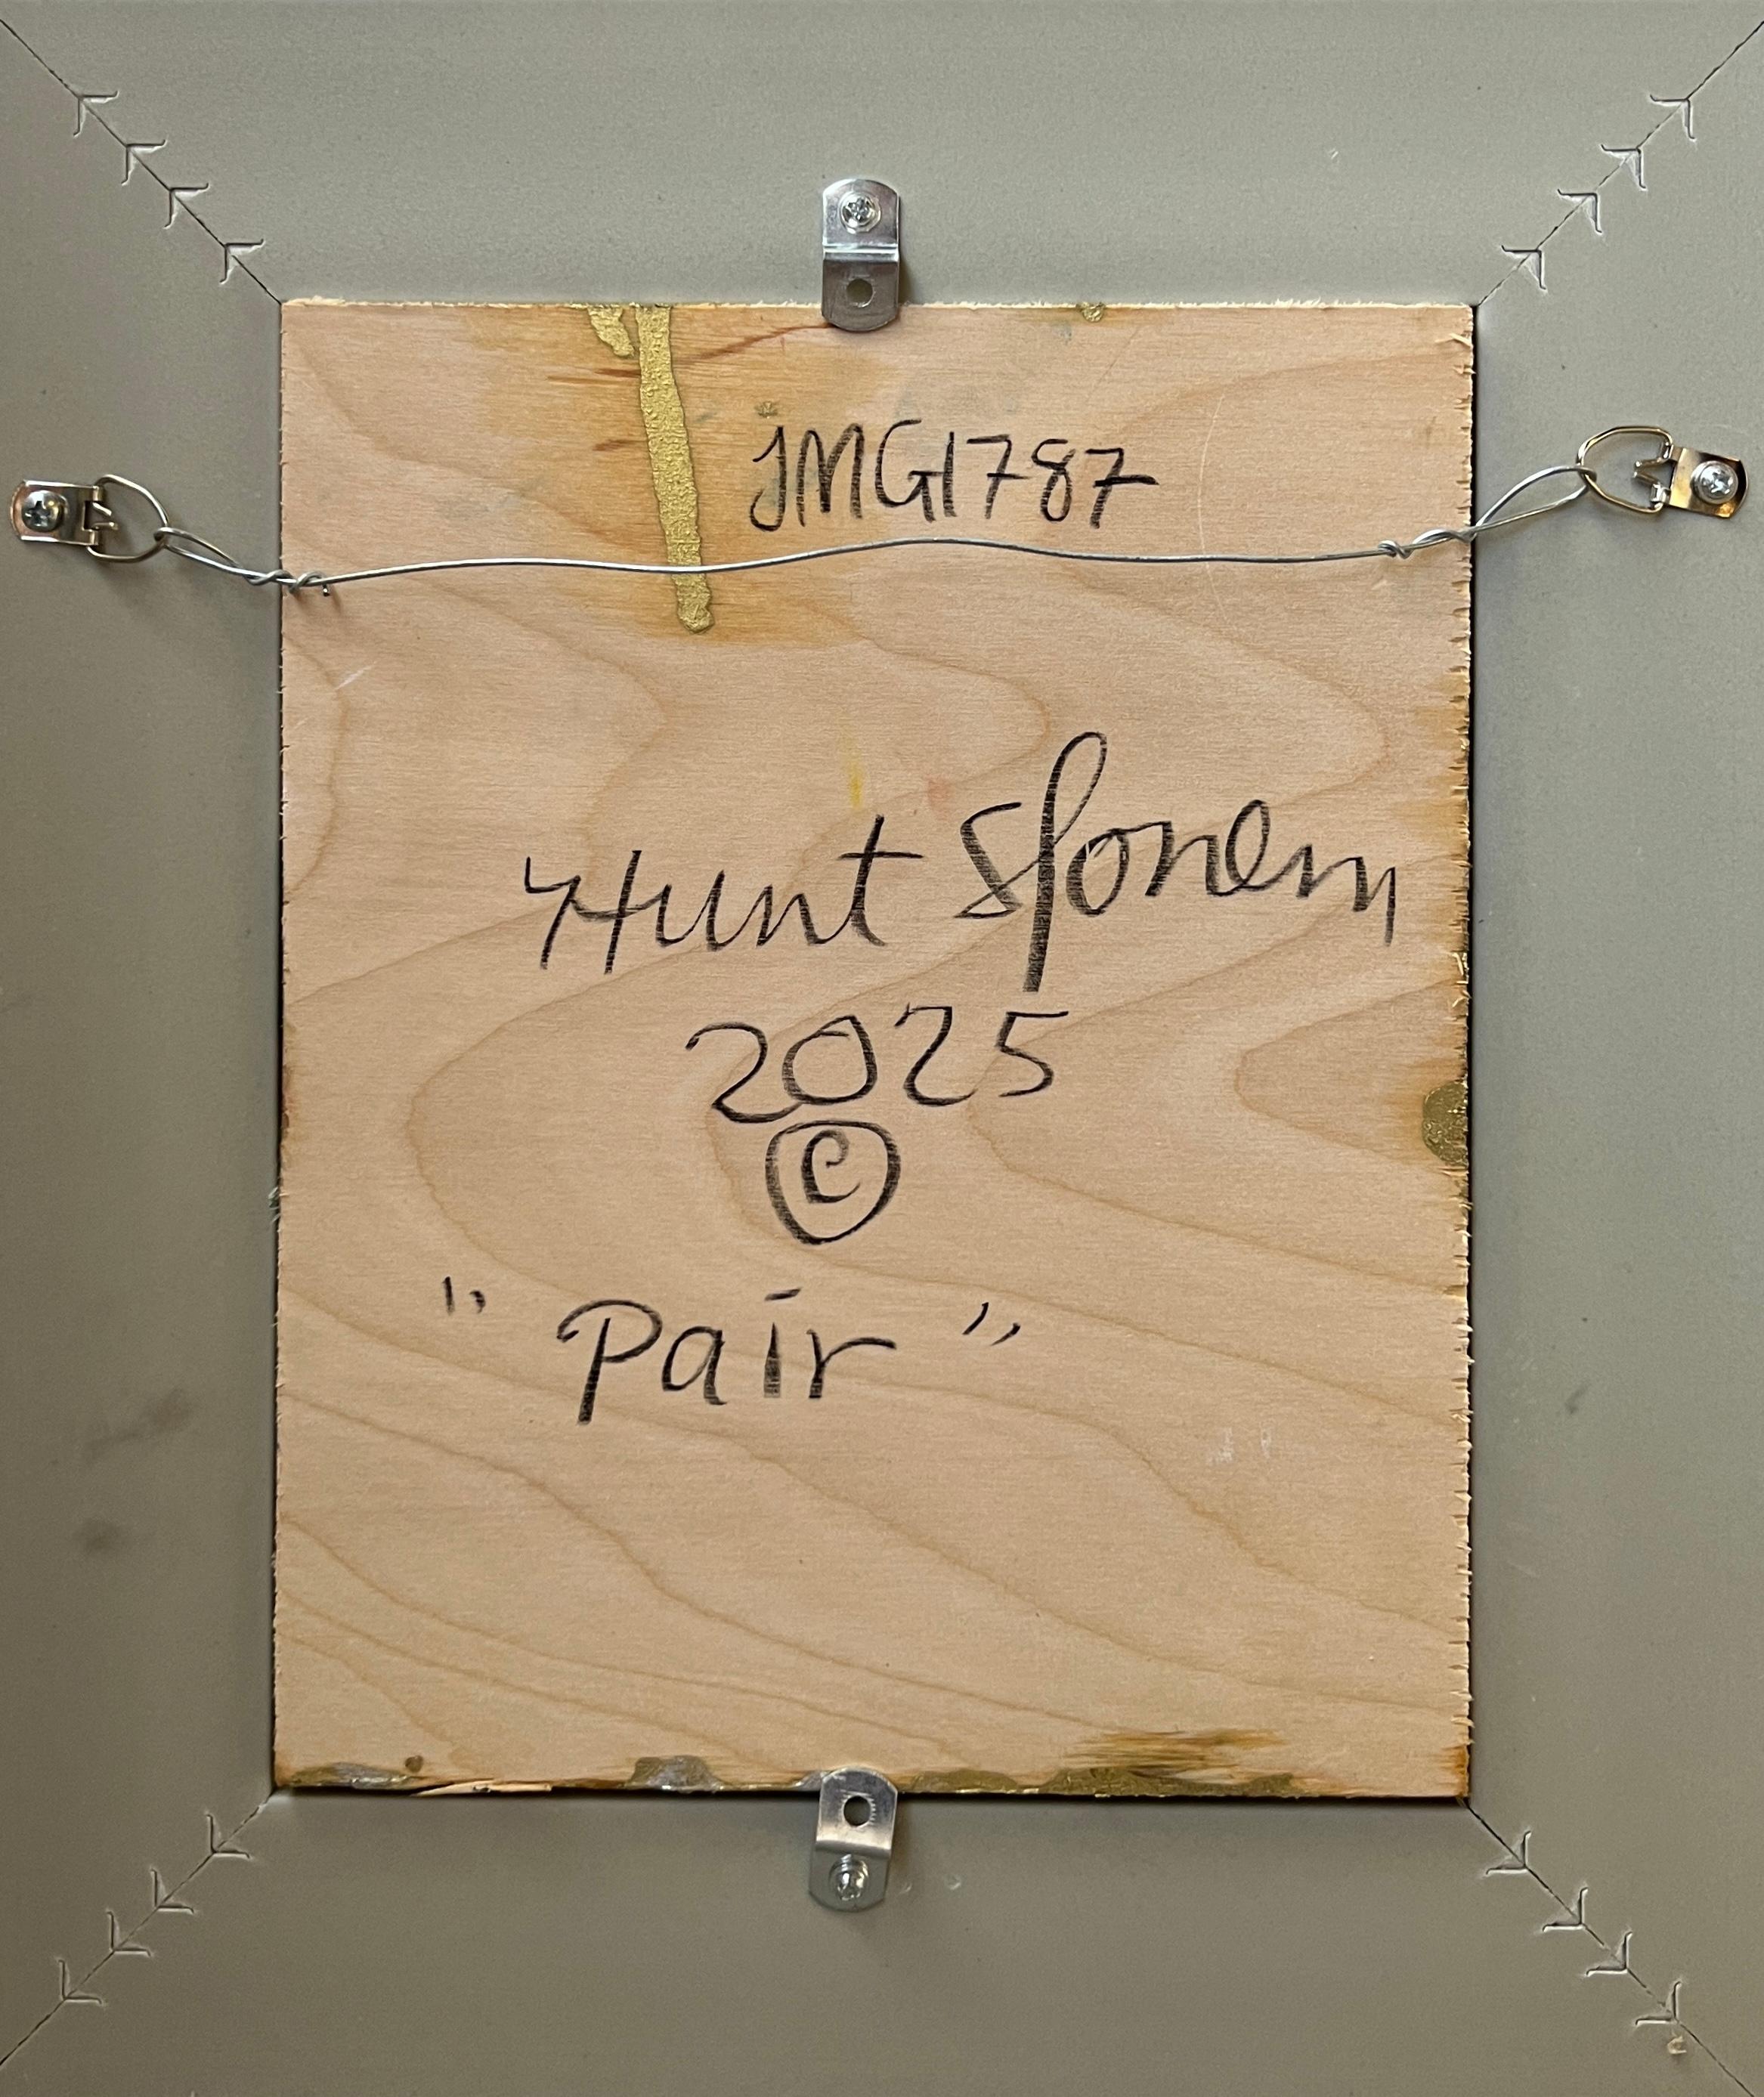 JMG1787
Hunt Slonem
2025
©
"Pair"